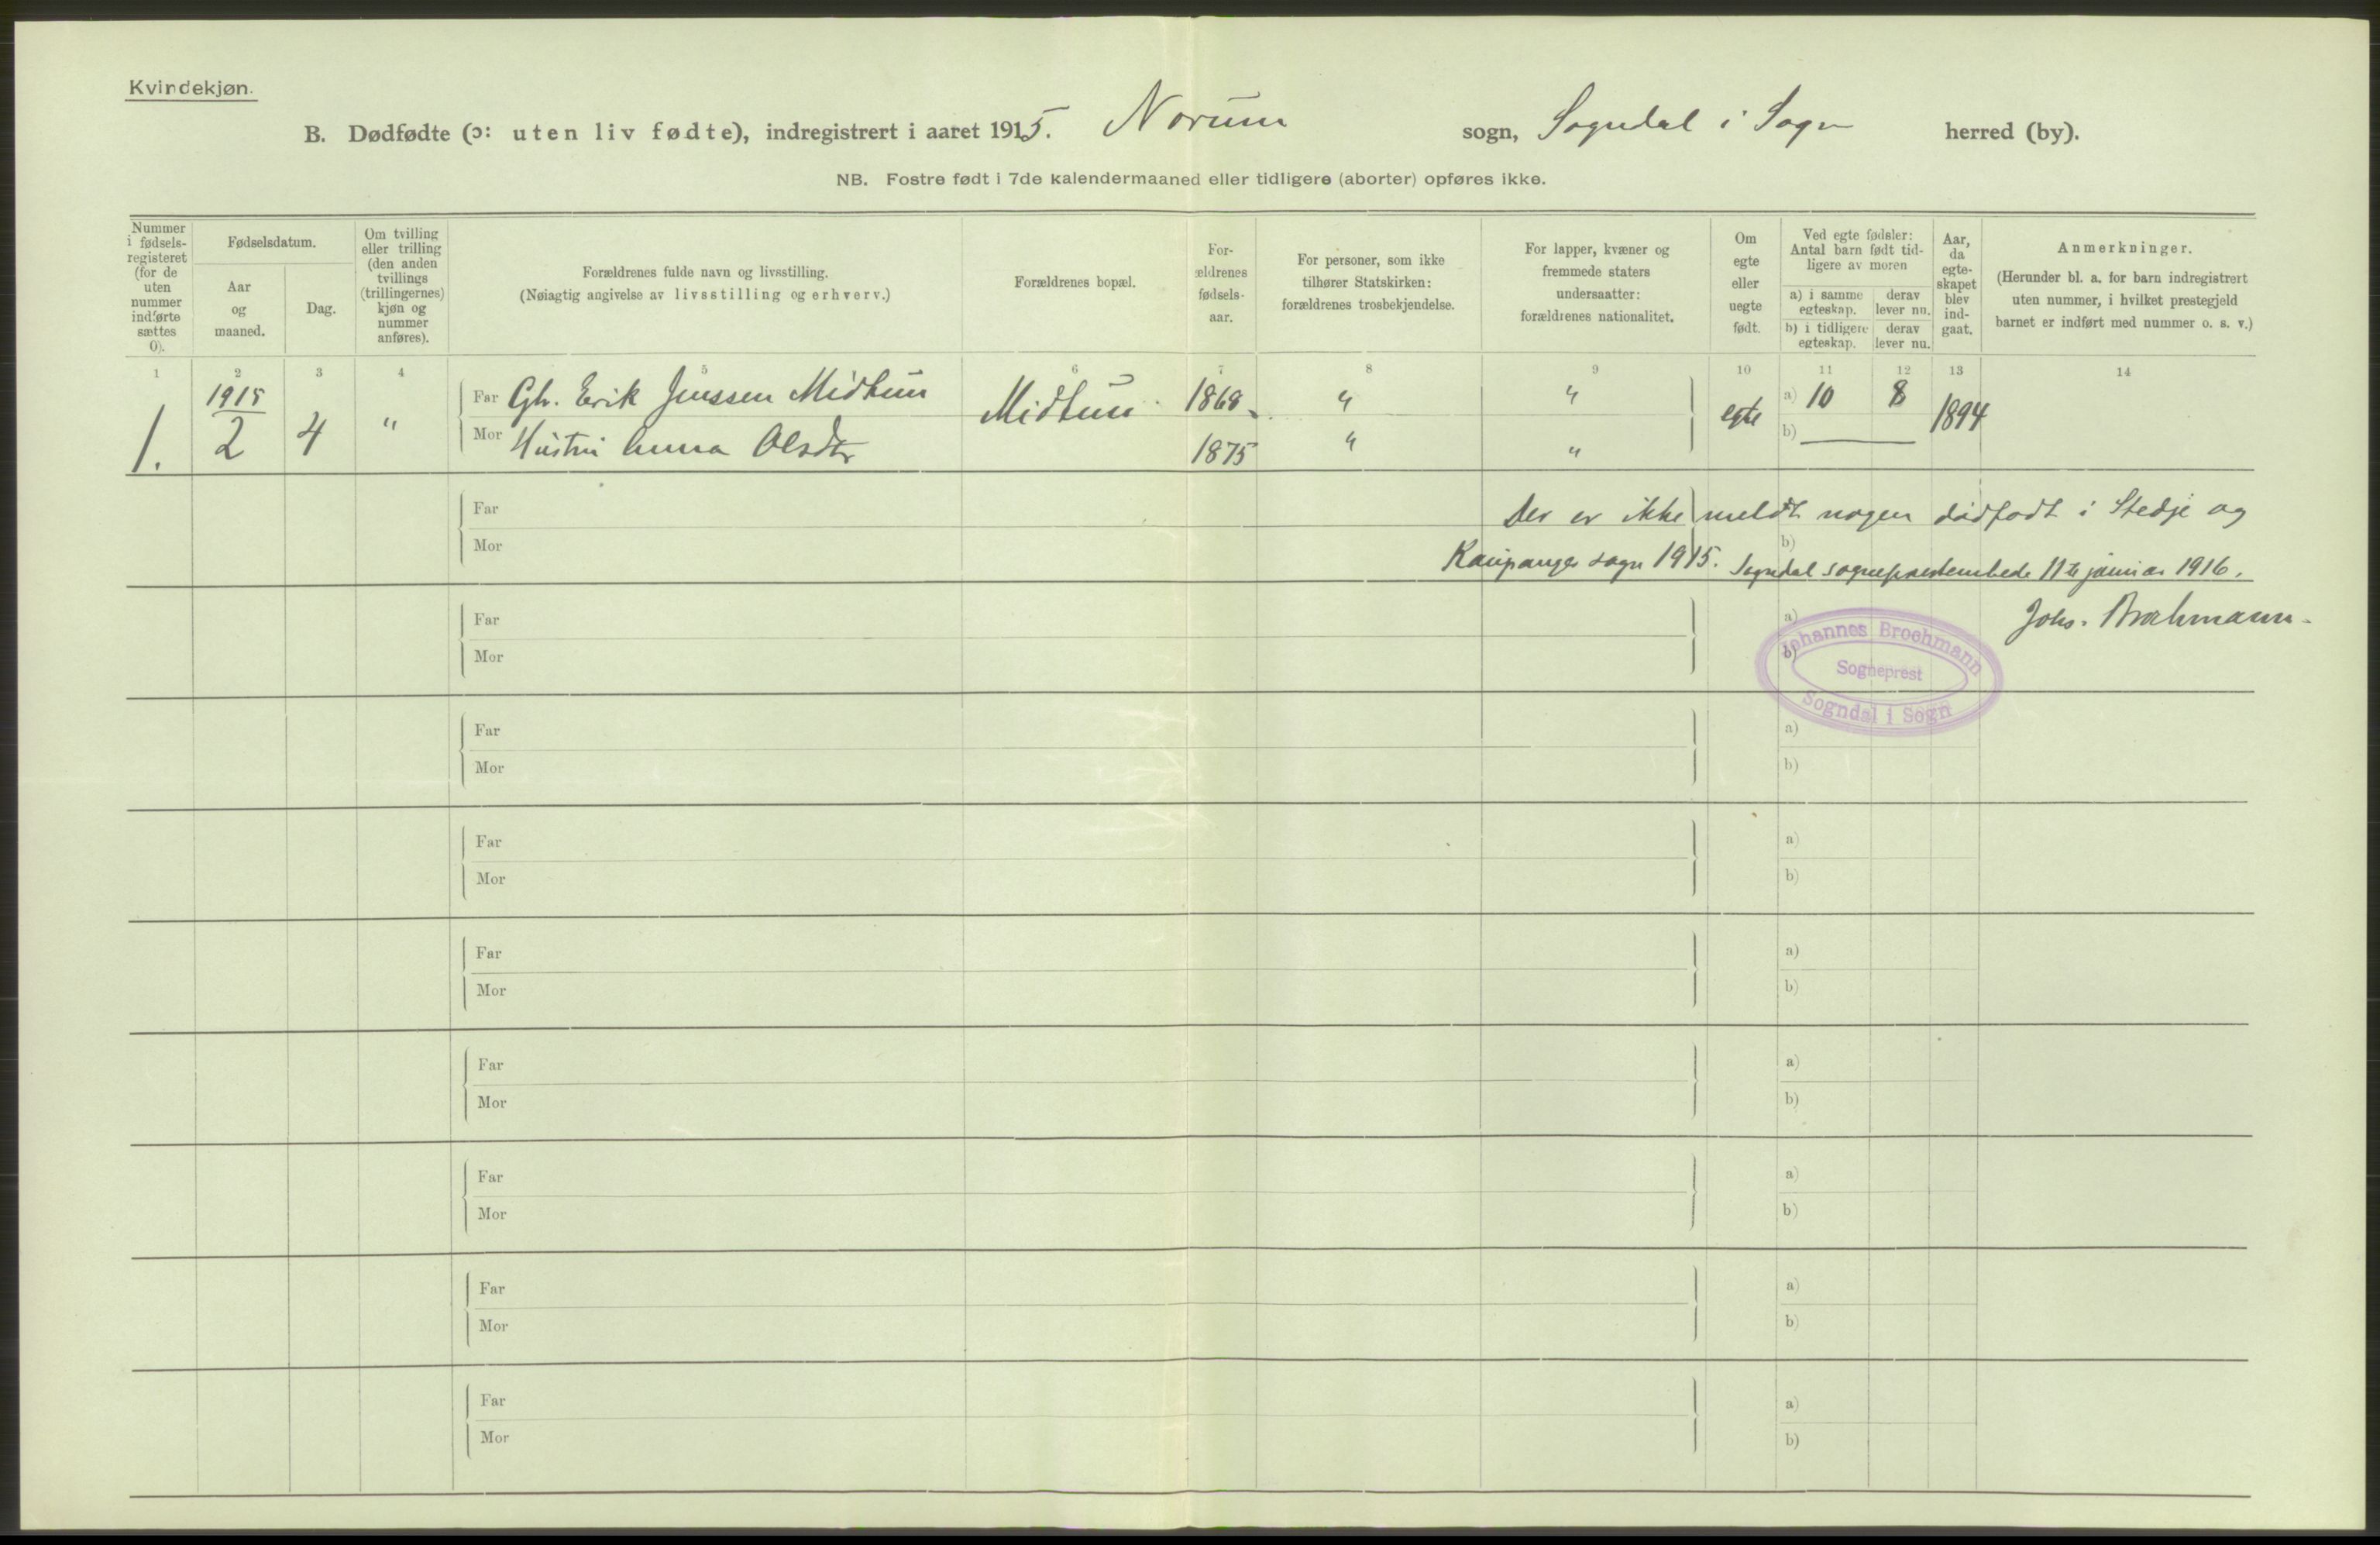 Kvindekjøn.
B. Dødfødte (ɔ: uten liv fødte), indregistrert i aaret 1915. Norum sogn, Sogndal i Sogn herred (by).
NB. Fostre født i 7de kalendermaaned eller tidligere (aborter) opføres ikke.
Nummer
i fødsels-
registeret
(for de
uten
nummer
indførte
sættes
0).
Fødselsdatum.
Aar
og
maaned.
Dag.
Om tvilling
eller trilling
(den anden
tvillings
(trillingernes)
kjøn og
nummer
anføres).
Forældrenes fulde navn og livsstilling.
(Nøiagtig angivelse av livsstilling og erhverv.)
Forældrenes bopæl.
For-
ældrenes
fødsels-
aar.
For personer, som ikke
tilhører Statskirken:
forældrenes trosbekjendelse.
For lapper, kvæner og
fremmede staters
undersaatter:
forældrenes nationalitet.
Om
egte
eller
uegte
født.
Ved egte fødsler:
Antal barn født tid-
ligere av moren
a) i samme
egteskap.
derav
lever nu.
b) i tidligere
egteskap.
derav
lever nu.
Aar,
da
egte-
skapet
blev
ind-
gaat.
Anmerkninger.
(Herunder bl. a. for barn indregistrert
uten nummer, i hvilket prestegjeld
barnet er indført med nummer o. s. v.)
1 2 3 4 5 6 7 8 9 10 11 12 13 14
1. 1915 2 4 "
Far Gbr. Erik Jenssen Midtun Midtun 1868 " " egte a) 10 8 1894
Mor Hustru Anna Olsdtr 1875 " " b)
Far Der er ikke meldt nogen dødfødt i Stedje og
Mor Kaupanger sogn 1915. b) Sogndal sogneprestembede 11te januar 1916.
Far a) Johs. Brochmann.
Mor b)
Johannes Brochmann
Sogneprest
Sogndal i Sogn
Far a)
Mor b)
Far a)
Mor b)
Far a)
Mor b)
Far a)
Mor b)
Far a)
Mor b)
Far a)
Mor b)
Far a)
Mor b)